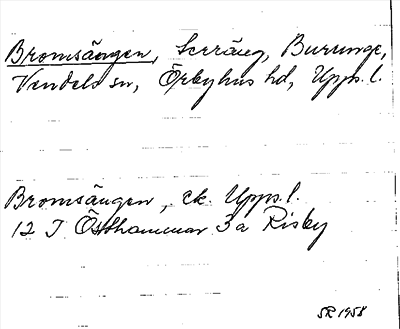 Bromsängen, Serräng, Burunge,
Vendels sn, Örbyhus hd, Upps. l.
Bromsängen, ek. Upps. l.
12 J Östhammar 3a Risby
SR 1958